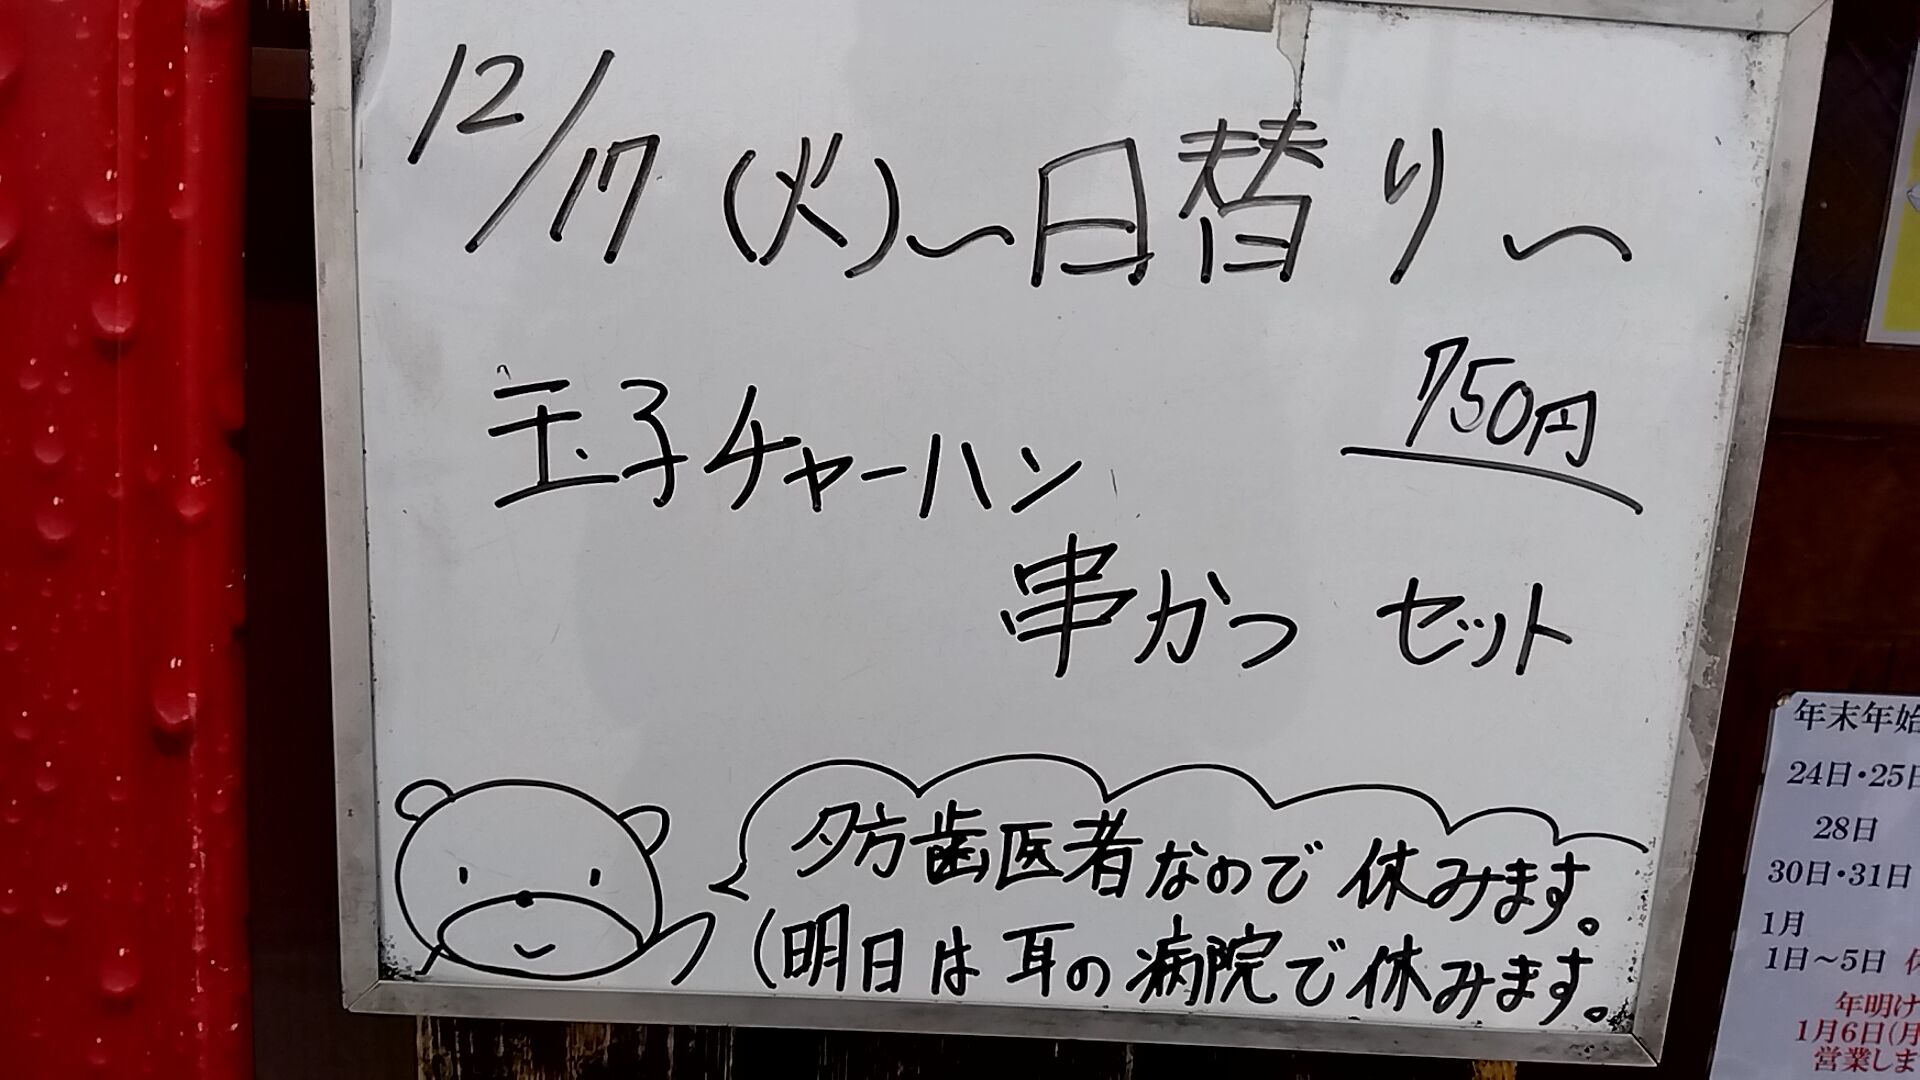 12/17(火)〜日替り〜
玉子チャーハン 750円
串かつ セット
夕方歯医者なので休みます。
(明日は耳の病院で休みます。
年末年始
24日・25日
28日
30日・31日
1月
1日〜5日
年明け
1月6日(月
営業しま